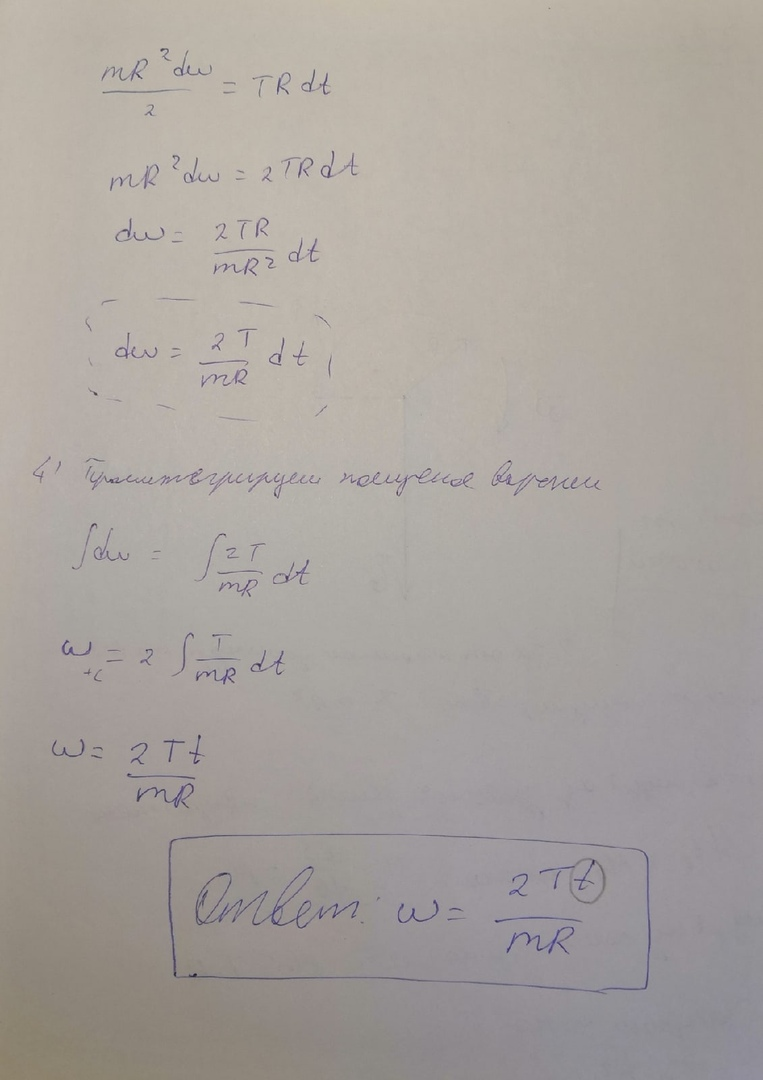 mR²dω/2 = TR dt
mR²dω = 2TR dt
dω = 2TR/mR² dt
dω = 2T/mR dt
4) Проинтегрируем
∫dω = ∫2T/mR dt
ω+c = 2 ∫T/mR dt
ω = 2Tt/mR
Ответ: ω = 2Tt/mR